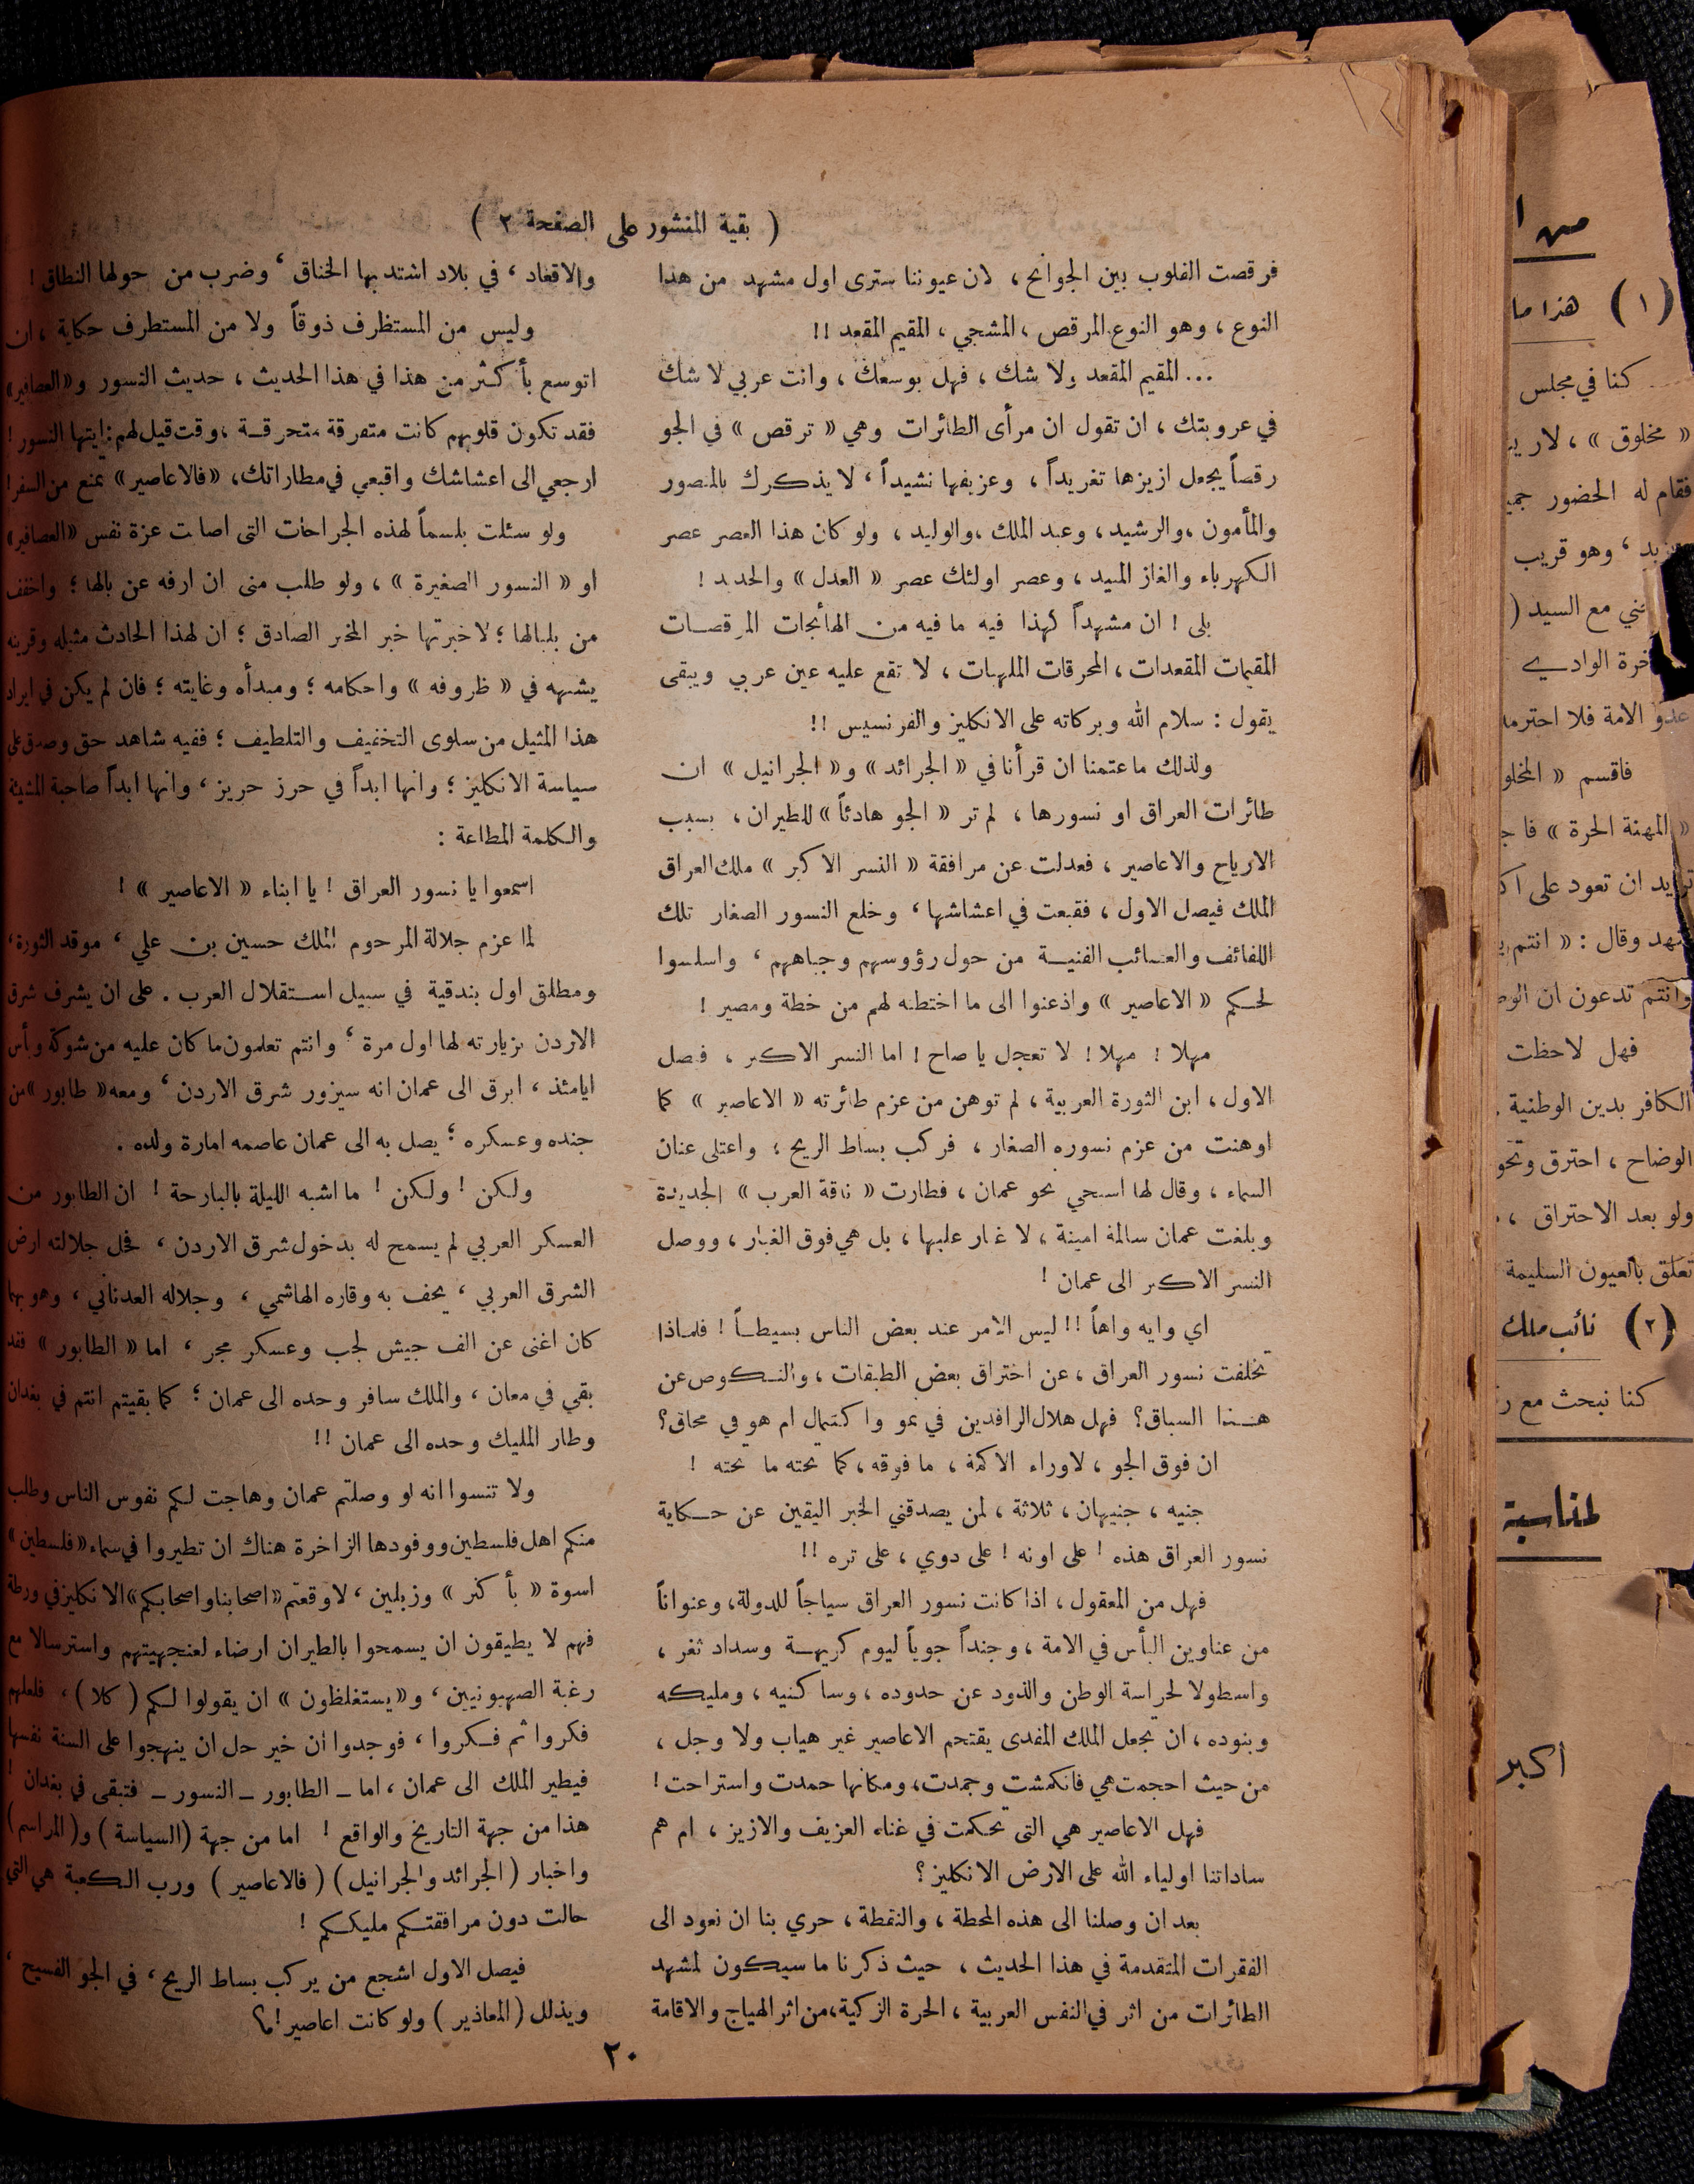 ( بقية المنشور على الصفحة ٢ )
فرقصت القلوب بين الجوانح ، لان عيوننا سترى اول مشهد من هذا
النوع ، وهو النوع المرقص ، المشجي ، المقيم المقعد !!
... المقيم المقعد ولا شك ، فهل بوسعك ، وانت عربي لا شك
في عروبتك ، ان تقول ان مرأى الطائرات وهي « ترقص » في الجو
رقصاً يجعل ازيزها تغريداً ، وعزيفها نشيداً ، لا يذكرك بالمنصور
والمأمون ، والرشيد ، وعبد الملك ، والوليد ، ولو كان هذا العصر عصر
الكهرباء والغاز المبيد ، وعصر اولئك عصر « العدل » والحديد !
بلى ! ان مشهداً كهذا فيه ما فيه من الهائجات المرقصات
المقيمات المقعدات ، المحرقات الملهبات ، لا تقع عليه عين عربي ويبقى
يقول : سلام الله وبركاته على الانكليز والفرنسيس !!
ولذلك ما عتمنا ان قرأنا في « الجرائد » و « الجرانيل » ان
طائرات العراق او نسورها ، لم تر « الجو هادئاً » للطيران ، بسبب
الارياح والاعاصير ، فعدلت عن مرافقة « النسر الاكبر » ملك العراق
الملك فيصل الاول ، فقبعت في اعشاشها ، وخلع النسور الصغار تلك
اللفائف والعصائب الفنية من حول رؤوسهم وجباههم ، واسلموا
لحكم « الاعاصير » واذعنوا الى ما اختطته لهم من خطة ومصير !
مهلا ! مهلا ! لا تعجل يا صاح ! اما النسر الاكبر ، فيصل
الاول ، ابن الثورة العربية ، لم توهن من عزم طائرته « الاعاصير » كما
اوهنت من عزم نسوره الصغار ، فركب بساط الريح ؛ واعتلى عنان
السماء ، وقال لها اسبحي نحو عمان ، فطارت « ناقة العرب » الجديدة
وبلغت عمان سالمة امينة ، لا غبار عليها ، بل هي فوق الغبار ، ووصل
النسر الاكبر الى عمان !
اي وايه واهاً !! ليس الامر عند بعض الناس بسيطاً ! فلماذا
تخلفت نسور العراق ، عن اختراق بعض الطبقات ، والنكوص عن
هذا السباق ؟ فهل هلال الرافدين في نمو واكتمال ام هو في محاق ؟
ان فوق الجو ، لا وراء الاكمة ، ما فوقه ، كما تحته ما تحته !
جنيه ، جنيهان ، ثلاثة ، لمن يصدقني الخبر اليقين عن حكاية
نسور العراق هذه ! على اونه ! على دوي ، على تره !!
فهل من المعقول ، اذا كانت نسور العراق سياجاً للدولة ، وعنواناً
من عناوين البأس في الامة ، وجنداً جوياً ليوم كريهة وسداد ثغر ،
واسطولا لحراسة الوطن والذود عن حدوده ، وساكنيه ، ومليكه
وبنوده ، ان تجعل الملك المفدى يقتحم الاعاصير غير هياب ولا وجل ،
من حيث احجمت هي فانكمشت وجمدت ، ومكانها حمدت واستراحت !
فهل الاعاصير هي التي تحكمت في غناء العزيف والازيز ، ام هم
ساداتنا اولياء الله على الارض الانكليز ؟
بعد ان وصلنا الى هذه المحطة ، والنقطة ، حري بنا ان نعود الى
الفقرات المتقدمة في هذا الحديث ، حيث ذكرنا ما سيكون لمشهد
الطائرات من اثر في النفس العربية ، الحرة الزكية ، من اثر الهياج والاقامة
والاقعاد ، في بلاد اشتد بها الخناق ، وضرب من حولها النطاق !
وليس من المستظرف ذوقاً ولا من المستطرف حكاية ، ان
اتوسع بأكثر من هذا في هذا الحديث ، حديث النسور و « العصافير »
فقد تكون قلوبهم كانت متفرقة متحرقة ، وقت قيل لهم : ايتها النسور !
ارجعي الى اعشاشك واقبعي في مطاراتك ، « فالاعاصير » تمنع من السفر !
ولو سئلت بلسماً لهذه الجراحات التي اصابت عزة نفس « العصافير »
او « النسور الصغيرة » ، ولو طلب مني ان ارفه عن بالها ؛ واخفف
من بلبالها ؛ لاخبرتها خبر المخبر الصادق ؛ ان لهذا الحادث مثيله وقرينه
يشبهه في « ظروفه » واحكامه ؛ ومبدأه وغايته ؛ فان لم يكن في ايراد
هذا المثيل من سلوى التخفيف والتلطيف ؛ ففيه شاهد حق وصدق على
سياسة الانكليز ؛ وانها ابداً في حرز حريز ، وانها ابداً صاحبة المشيئة
والكلمة المطاعة :
اسمعوا يا نسور العراق ! يا ابناء « الاعاصير » !
لما عزم جلالة المرحوم الملك حسين بن علي ، موقد الثورة ،
ومطلق اول بندقية في سبيل استقلال العرب . على ان يشرف شرق
الاردن بزيارته لها اول مرة ، وانتم تعلمون ما كان عليه من شوكة وبأس
ايامئذ ، ابرق الى عمان انه سيزور شرق الاردن ، ومعه « طابور » من
جنده وعسكره ؛ يصل به الى عمان عاصمه امارة ولده .
ولكن ! ولكن ! ما اشبه الليلة بالبارحة ! ان الطابور من
العسكر العربي لم يسمح له بدخول شرق الاردن ، فحل جلالته ارض
الشرق العربي ، يحف به وقاره الهاشمي ، وجلاله العدناني ، وهو بهما
كان اغنى عن الف جيش لجب وعسكر مجر ، اما « الطابور » فقد
بقي في معان ، والملك سافر وحده الى عمان ؛ كما بقيتم انتم في بغدان
وطار المليك وحده الى عمان !!
ولا تنسوا انه لو وصلتم عمان وهاجت لكم نفوس الناس وطلب
منكم اهل فلسطين ووفودها الزاخرة هناك ان تطيروا في سماء « فلسطين »
اسوة « بأكنر » وزبلين ، لاوقعتم « اصحابنا واصحابكم » الانكليز في ورطة
فهم لا يطيقون ان يسمحوا بالطيران ارضاء لعنجهيتهم واسترسالا مع
رغبة الصهيونيين ، و « يستغلظون » ان يقولوا لكم ( كلا ) ، فلعلهم
فكروا ثم فكروا ، فوجدوا ان خير حل ان ينهجوا على السنة نفسها
فيطير الملك الى عمان ، اما ـ الطابور ـ النسور ـ فتبقى في بغدان !
هذا من جهة التاريخ والواقع ! اما من جهة (السياسة) و (المراسم)
واخبار ( الجرائد والجرانيل ) ( فالاعاصير ) ورب الكعبة هي التي
حالت دون مرافقتكم مليككم !
فيصل الاول اشجع من يركب بساط الريح ، في الجو الفسيح ،
ويذلل ( المعاذير ) ولو كانت اعاصير !
٢٠
من ا
( ١ ) هذا ما
كنا في مجلس
« مخلوق » ،
فقام له الحضور
وهو قريب
مع السيد (
عدو الامة فلا
فاقسم
« المهنة الحرة »
ان تعود على
وقال : « انتم
وانتم تدعون ان
فهل لاحظت
الكافر بدين الوطنية .
الوضاح ، احترق
ولو بعد الاحتراق ،
تعلق بالعيون السليمة
( ٢ ) نائب ملك
كنا نبحث مع
لمناسبة
أكبر